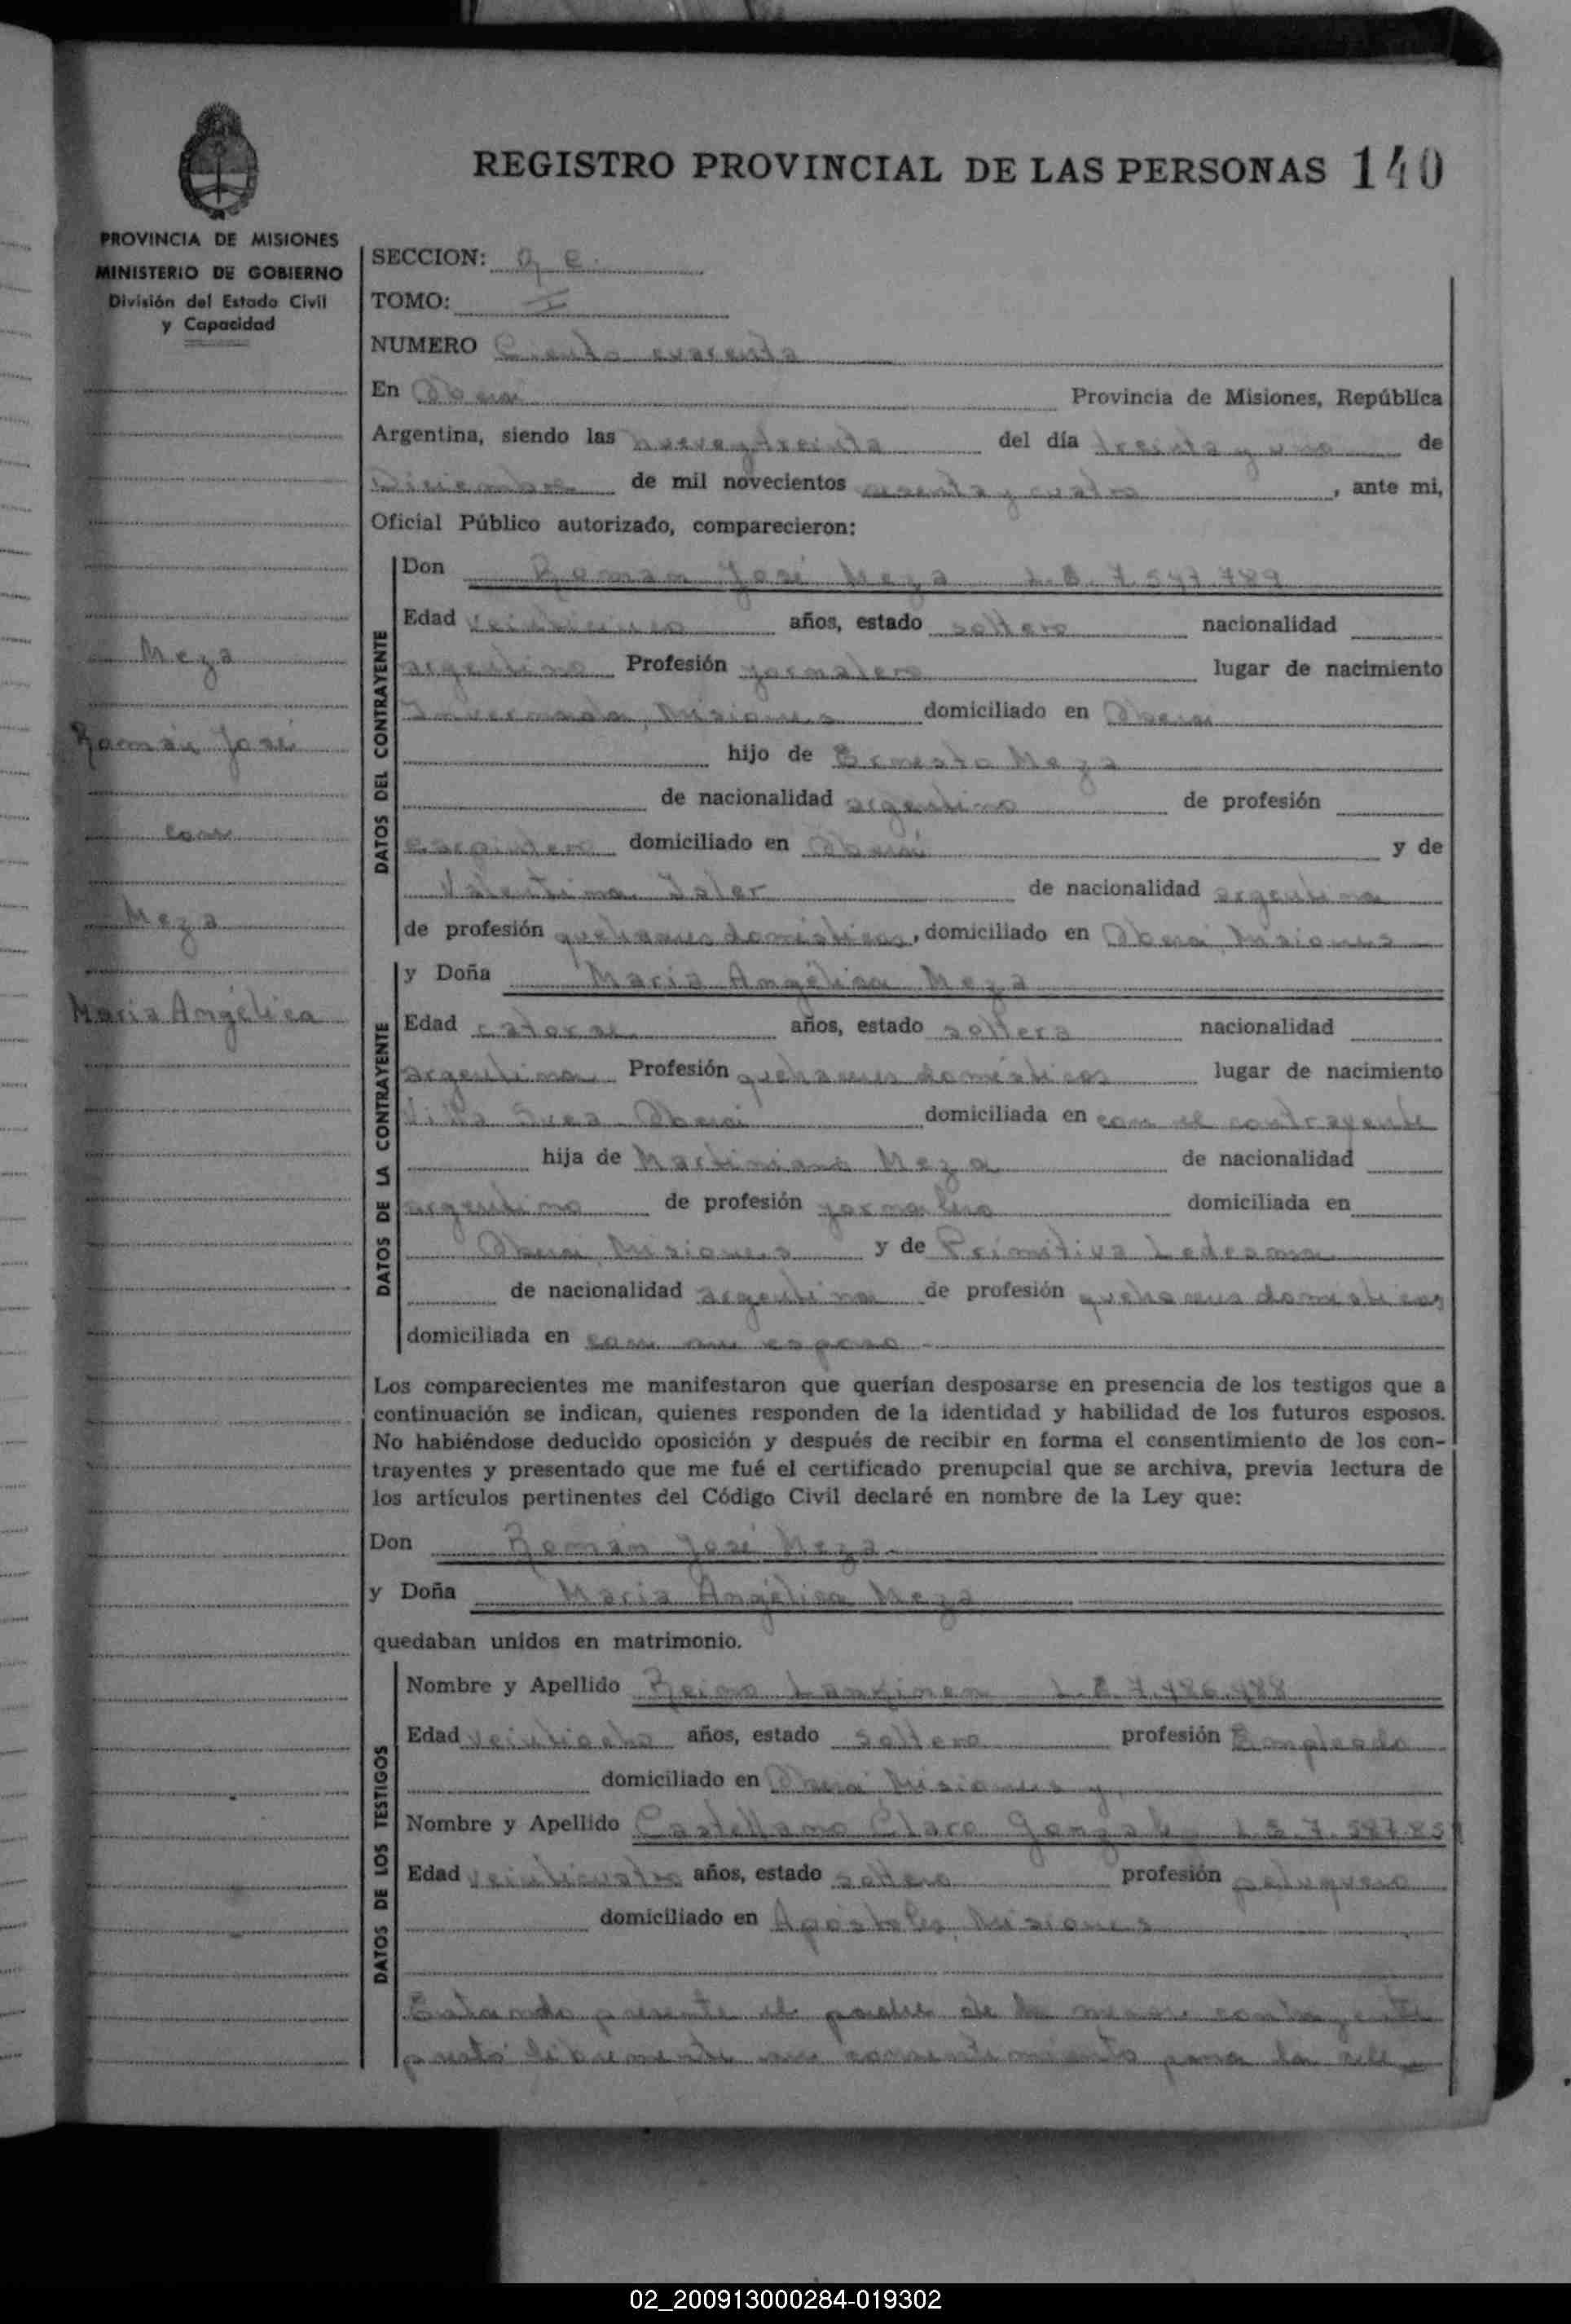 REGISTRO PROVINCIAL DE LAS PERSONAS 140
PROVINCIA DE MISIONES
MINISTERIO DE GOBIERNO
División del Estado Civil
y Capacidad
Meza
Román José
con
Meza
María Angélica
SECCION:
TOMO: I
NUMERO Ciento cuarenta
En Oberá Provincia de Misiones, República
Argentina, siendo las nueve y treinta del día treinta y uno de
Diciembre de mil novecientos sesenta y cuatro, ante mi,
Oficial Público autorizado, comparecieron:
DATOS DEL CONTRAYENTE
Don Román José Meza L.E. 7.547.789
Edad veinticinco años, estado soltero nacionalidad
argentino Profesión jornalero lugar de nacimiento
Invernada, Misiones domiciliado en Oberá
hijo de Ernesto Meza
de nacionalidad argentino de profesión
carpintero domiciliado en Oberá y de
Valentina Isler de nacionalidad argentina
de profesión quehaceres domésticos, domiciliado en Oberá Misiones
DATOS DE LA CONTRAYENTE
y Doña María Angélica Meza
Edad catorce años, estado soltera nacionalidad
argentina Profesión quehaceres domésticos lugar de nacimiento
Villa Svea Oberá domiciliada en con el contrayente
hija de Martiniano Meza de nacionalidad
argentino de profesión jornalero domiciliada en
Oberá, Misiones y de Primitiva Ledesma
de nacionalidad argentina de profesión quehaceres domesticos
domiciliada en con su esposo
Los comparecientes me manifestaron que querían desposarse en presencia de los testigos que a
continuación se indican, quienes responden de la identidad y habilidad de los futuros esposos.
No habiéndose deducido oposición y después de recibir en forma el consentimiento de los con-
trayentes y presentado que me fué el certificado prenupcial que se archiva, previa lectura de
los artículos pertinentes del Código Civil declaré en nombre de la Ley que:
Don Román José Meza
y Doña María Angélica Meza
quedaban unidos en matrimonio.
DATOS DE LOS TESTIGOS
Nombre y Apellido Reimo L.E. 7.486.488
Edad veintiocho años, estado soltero profesión Empleado
domiciliado en Oberá Misiones y
Nombre y Apellido Castellano Claro Gonzalez
Edad veinticuatro años, estado soltero profesión peluquero
domiciliado en Apóstoles, Misiones
Estando presente el padre de la menor contrayente
prestó libremente su consentimiento para la cele
02_200913000284-019302